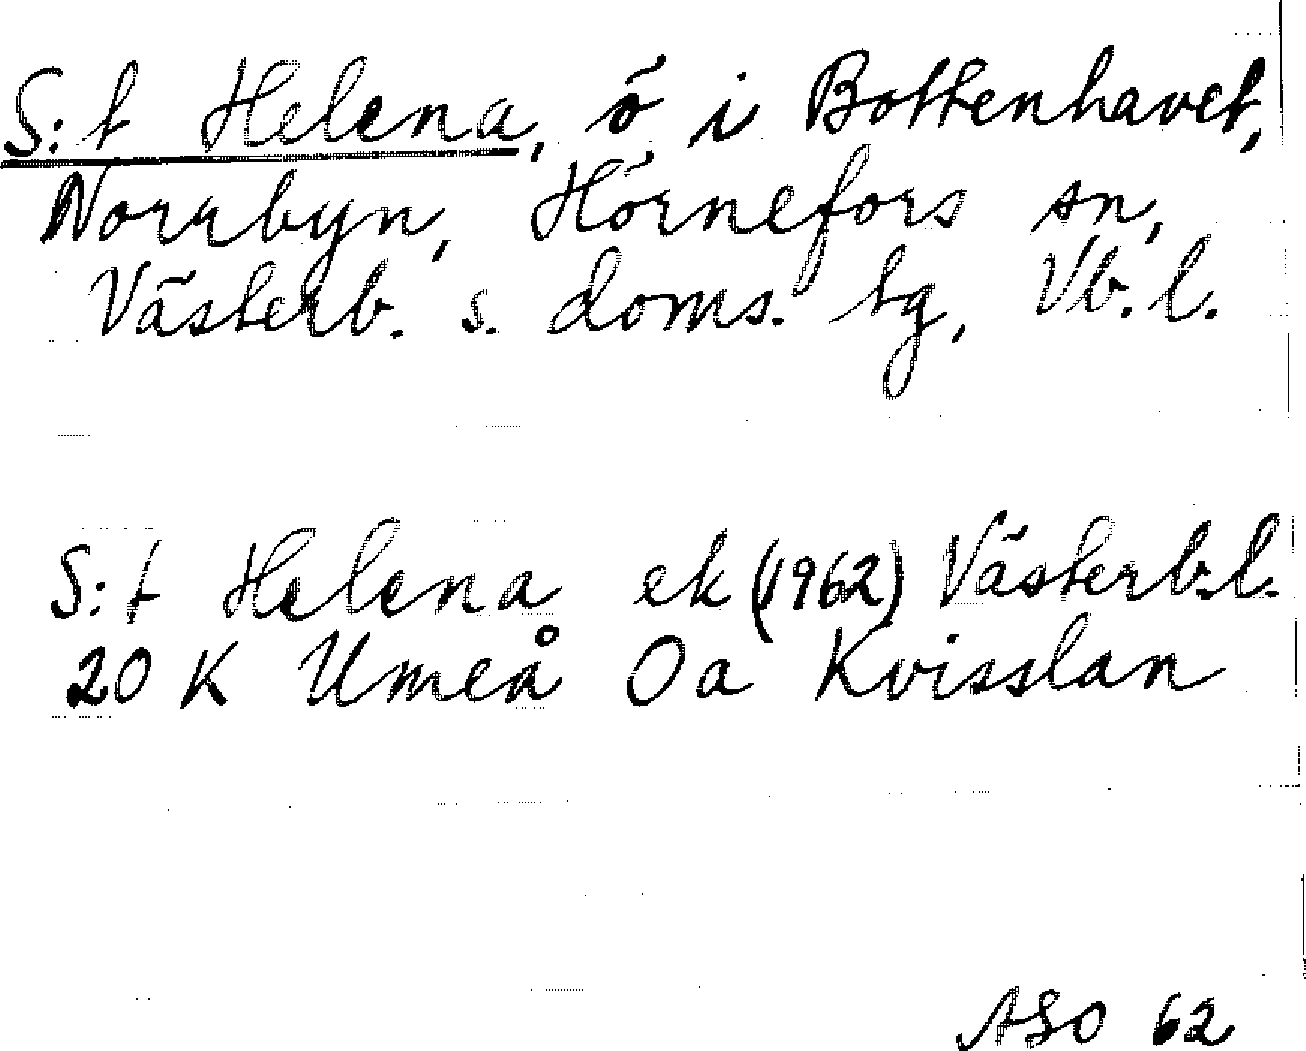 S:t Helena, ö i Bottenhavet,
Norrbyn, Hörnefors sn,
Västerb. s. doms. tg, Vb. l.
S:t Helena ek (1962) Västerb.l.
20 K Umeå Oa Kvisslan
ASO 62